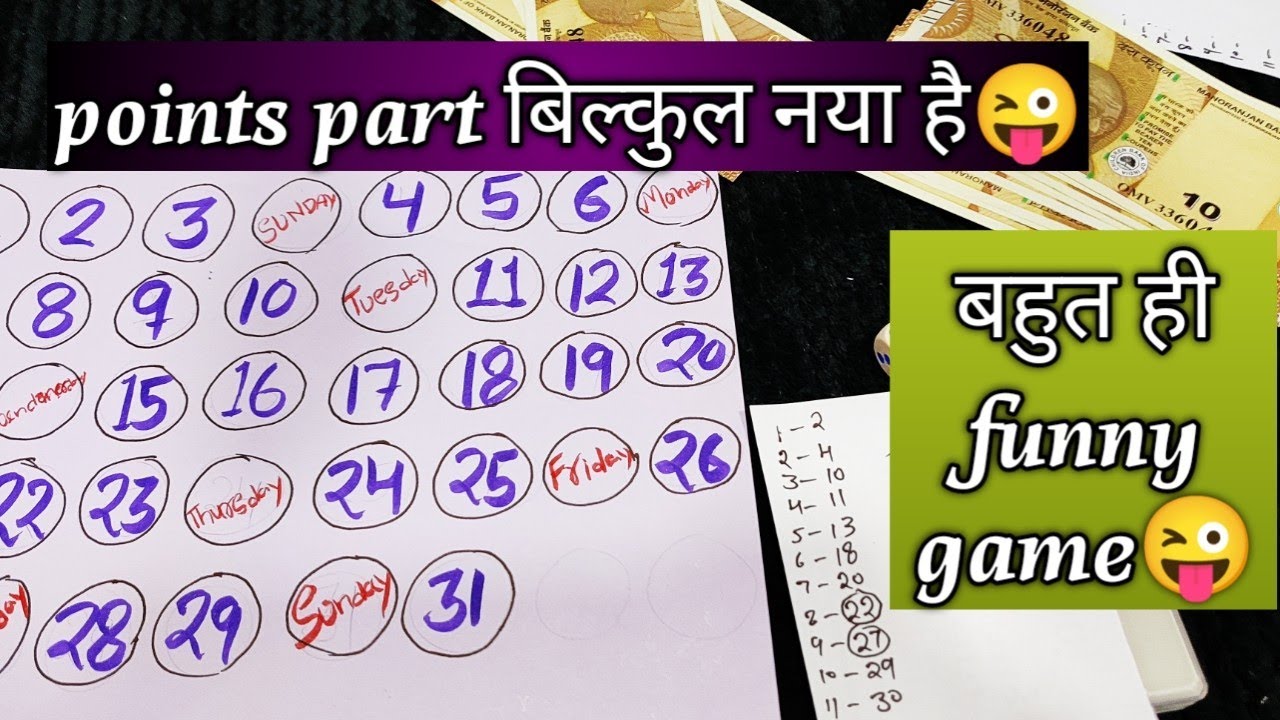 points part बिल्कुल नया है😜
2 3 SUNDAY 4 5 6 Monday
8 9 10 Tuesday 11 12 13
15 16 17 18 19 20
22 23 Thursday 24 25 Friday 26
28 29 Sunday 31
बहुत ही
funny
game😜
1-2
2-4
3-10
4-11
5-13
6-18
7-20
8-22
9-27
10-29
11-30
MANORANJAN BANK
OMV 336048
10
OMV 33604